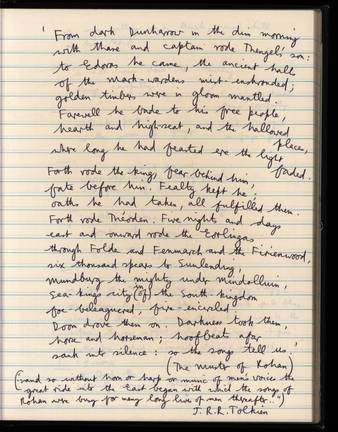 ' From dark Dunharrow in the dim morning
with thane and captain rode Thengel's son:
to Edoras he came, the ancient halls
of the Mark-wardens mist-enshrouded;
golden timbers were in gloom mantled.
Farewell he bade to his free people,
hearth and high-seat, and the hallowed
places,
where long he had feasted ere the light
faded.
Forth rode the king, fear behind him,
fate before him. Fealty kept he;
oaths he had taken, all fulfilled them.
Forth rode Théoden. Five nights and days
east and onward rode the Eorlingas
through Folde and Fenmarch and the Firienwood,
six thousand spears to Sunlending,
Mundburg the mighty under Mindolluin,
Sea-kings' city (of) the South-kingdom
foe-beleaguered, fire-encircled.
Doom drove them on. Darkness took them,
horse and horseman; hoofbeats afar
sank into silence: so the songs tell us. '
(The Minstr of Rohan)
("and so without horn or harp or music of men's voices the
great ride into the East began with which the songs of
Rohan were busy for many long lives of men thereafter..")
J.R.R.Tolkien